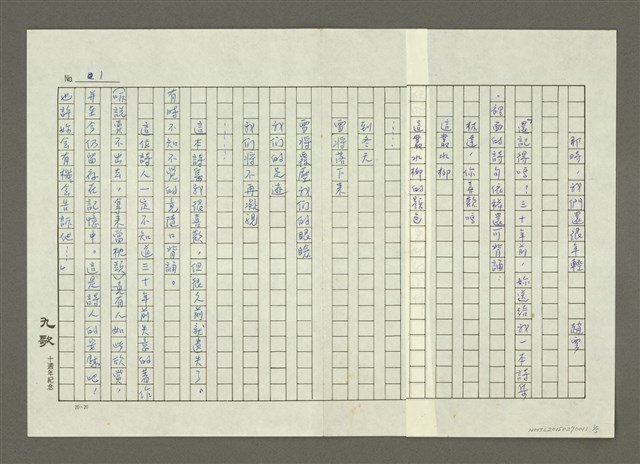 那時，我們還很年輕　趙雲
「還記得嗎？三十年前，妳送給我一本詩集
，裡面的詩句依然還可背誦
林達，你喜歡嗎
這叢水柳
這叢水柳的顏色
……
到冬天
雪將落下來
雪將覆壓我們的眼瞼
我們的足迹
我們將不再凝視
……
這本詩集我很喜歡，但很久前就遺失了。
有時不知不覺的竟隨口背誦。
這位詩人一定不知道三十年前失意的著作
（听說賣不出去，拿來當枕頭）竟有人如此欣賞，
并至今仍留存在記憶中。這是詩人的安慰吧！
也許始會有機會告訴他…」
No 1
九歌 十週年紀念
20×20